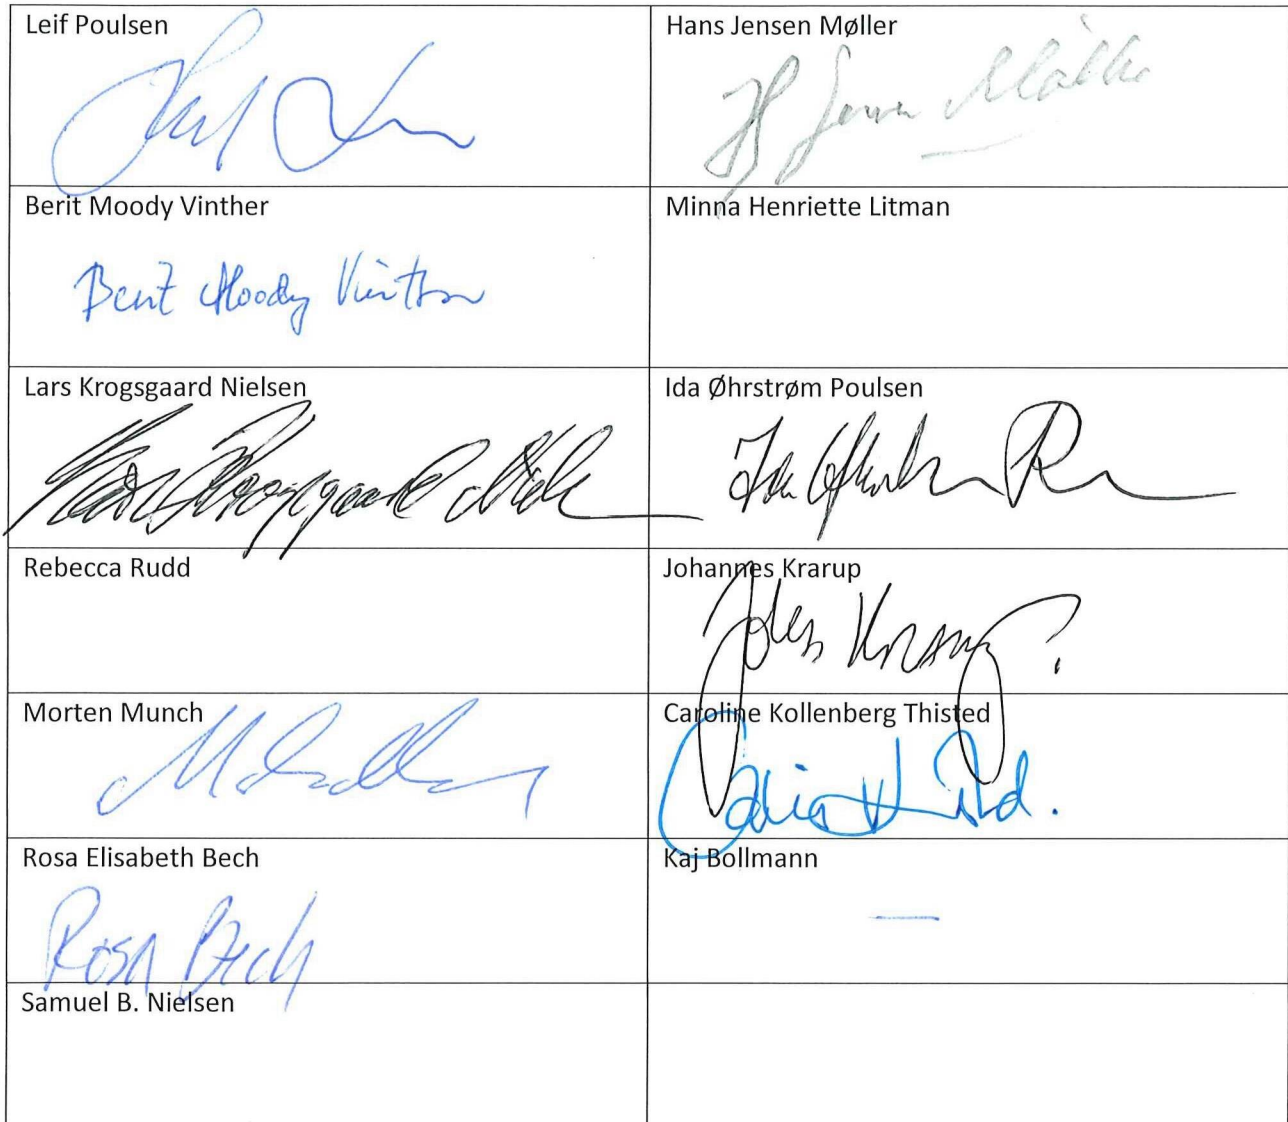 Leif Poulsen
Hans Jensen Møller
Berit Moody Vinther
Berit Moody Vinther
Minna Henriette Litman
Lars Krogsgaard Nielsen
Lars Krogsgaard
Ida Øhrstrøm Poulsen
Ida
Rebecca Rudd
Johannes Krarup
Morten Munch
Caroline Kollenberg Thisted
Rosa Elisabeth Bech
Rosa Bech
Kaj Bollmann
—
Samuel B. Nielsen